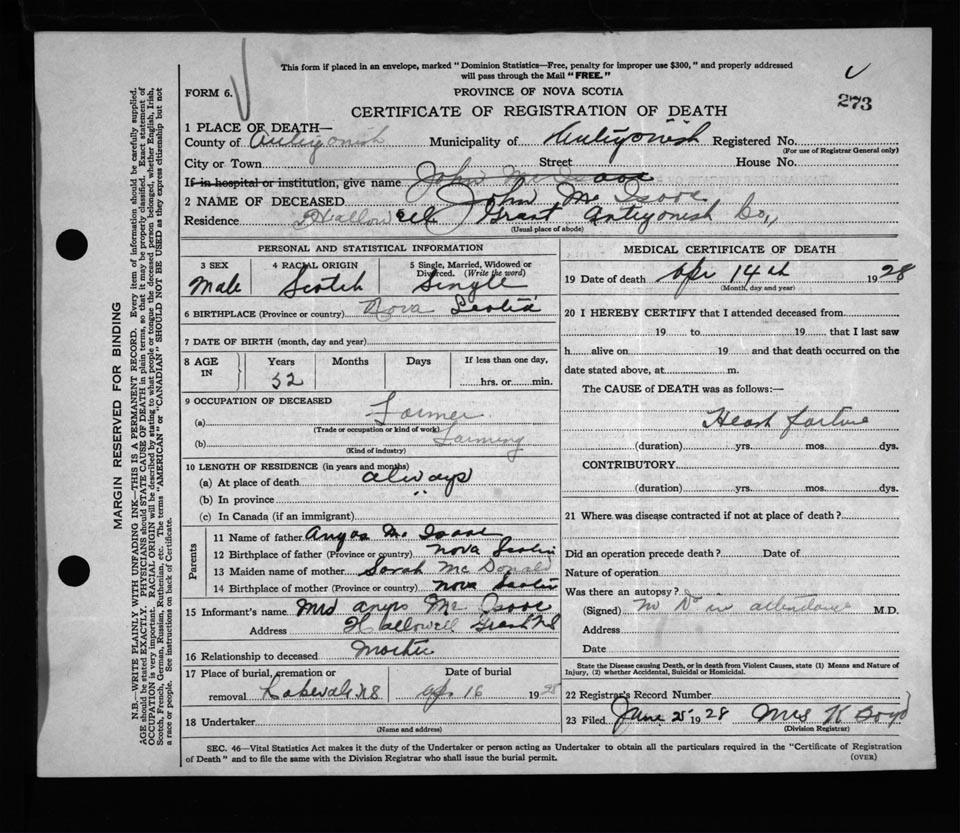 This form if placed in an envelope, marked "Dominion Statistics—Free, penalty for improper use $300," and properly addressed
will pass through the Mail "FREE."
FORM 6.
PROVINCE OF NOVA SCOTIA
273
CERTIFICATE OF REGISTRATION OF DEATH
1 PLACE OF DEATH—
County of Antigonish Municipality of Antigonish Registered No.
(For use of Registrar General only)
City or Town Street House No.
If in hospital or institution, give name John Mc Isaac
2 NAME OF DECEASED John Mc Isaac
Residence Hallowell Grant Antigonish Co,
(Usual place of abode)
PERSONAL AND STATISTICAL INFORMATION
3 SEX
Male
4 RACIAL ORIGIN
Scotch
5 Single, Married, Widowed or
Divorced. (Write the word)
Single
6 BIRTHPLACE (Province or country) Nova Scotia
7 DATE OF BIRTH (month, day and year)
8 AGE
IN
Years
52
Months
Days
If less than one day,
hrs. or min.
9 OCCUPATION OF DECEASED
(a) Farmer
(Trade or occupation or kind of work)
(b) Farming
(Kind of industry)
10 LENGTH OF RESIDENCE (in years and months)
(a) At place of death always
(b) In province "
(c) In Canada (if an immigrant)
Parents
11 Name of father Angas Mc Isaac
12 Birthplace of father (Province or country) Nova Scotia
13 Maiden name of mother Sarah Mc Donald
14 Birthplace of mother (Province or country) Nova Scotia
15 Informant's name Mrs Angus Mc Isaac
Address Hallowell Grant N S
16 Relationship to deceased Mother
17 Place of burial, cremation or
removal Lakevale N S
Date of burial
Apr 16 1928
18 Undertaker
(Name and address)
MEDICAL CERTIFICATE OF DEATH
19 Date of death Apr 14th 1928
(Month, day and year)
20 I HEREBY CERTIFY that I attended deceased from
19 to 19 that I last saw
h alive on 19 and that death occurred on the
date stated above, at m.
The CAUSE of DEATH was as follows:—
Heart failure
(duration) yrs. mos. dys.
CONTRIBUTORY
(duration) yrs. mos. dys.
21 Where was disease contracted if not at place of death?
Did an operation precede death? Date of
Nature of operation
Was there an autopsy?
(Signed) No Dr in attendance M.D.
Address
Date
State the Disease causing Death, or in death from Violent Causes, state (1) Means and Nature of
Injury, and (2) whether Accidental, Suicidal or Homicidal.
22 Registrar's Record Number
23 Filed June 25 1928 Mrs K Boyd
(Division Registrar)
SEC. 46—Vital Statistics Act makes it the duty of the Undertaker or person acting as Undertaker to obtain all the particulars required in the "Certificate of Registration
of Death" and to file the same with the Division Registrar who shall issue the burial permit.
(OVER)
MARGIN RESERVED FOR BINDING
N.B.—WRITE PLAINLY WITH UNFADING INK—THIS IS A PERMANENT RECORD. Every item of information should be carefully supplied.
AGE should be stated EXACTLY. PHYSICIANS should STATE CAUSE OF DEATH in plain terms, so that it may be properly classified. Exact statement of
OCCUPATION is very important. RACIAL ORIGIN will be described by stating to what people or tongue the deceased person belonged, whether English, Irish,
Scotch, French, German, Russian, Ruthenian, etc. The terms "AMERICAN" or "CANADIAN" SHOULD NOT BE USED as they express citizenship but not
a race or people. See instructions on back of Certificate.